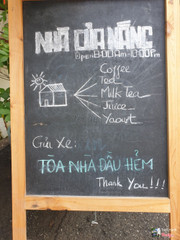 NHÀ CỦA NẮNG
Open: 8:00Am-10:00Pm
Coffee
Tea
Milk Tea
Juice
Yaourt
Gửi Xe:
TÒA NHÀ ĐẦU HẺM
Thank You!!!